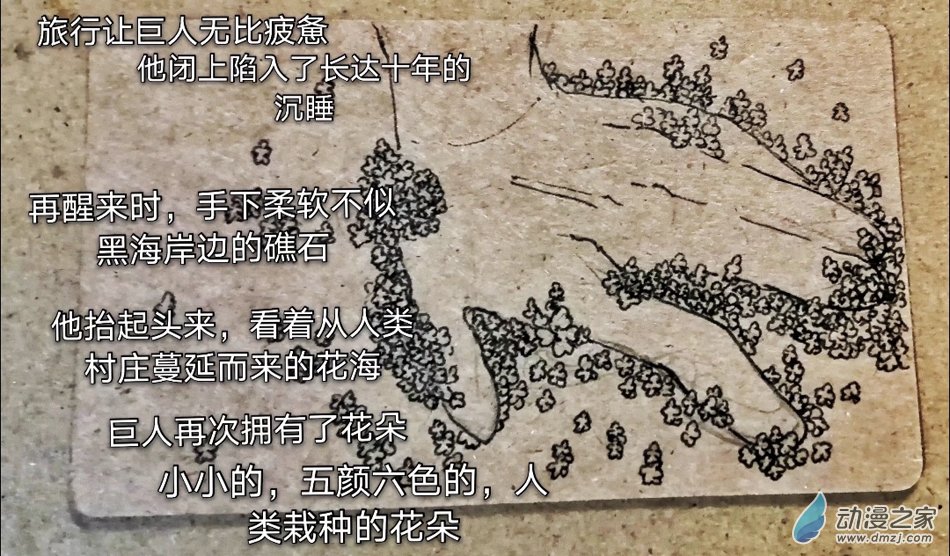 旅行让巨人无比疲惫
他闭上陷入了长达十年的
沉睡
再醒来时，手下柔软不似
黑海岸边的礁石
他抬起头来，看着从人类
村庄蔓延而来的花海
巨人再次拥有了花朵
小小的，五颜六色的，人
类栽种的花朵
动漫之家
www.dmzj.com